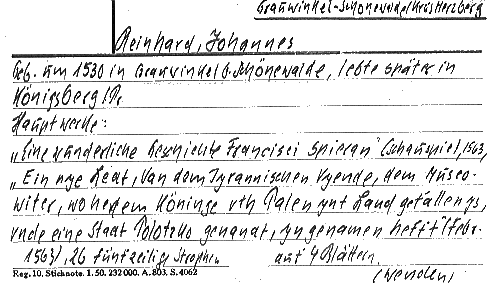 Grauwinkel-Schönewalde/Kreis Herzberg
Reinhard, Johannes
Geb. um 1530 in Grauwinkel b. Schönewalde, lebte später in
Königsberg/Pr.
Hauptwerke:
„Eine wunderliche Geschichte Francisci Spieran" (Schauspiel), 1563,
„Ein nye Leat, Van dem Tyrannischen Vyende, dem Musco-
witer, wo he dem Köninge vth Palen ynt Land gefallen ys,
vnde eine Staat Polotzko genanat, yngenamen hefft" (Febr.
1563), 26 fünfzeilige Strophen auf 4 Blättern.
(wenden)
Reg. 10. Sticknote. 1. 50. 232 000. A. 803. S. 4062